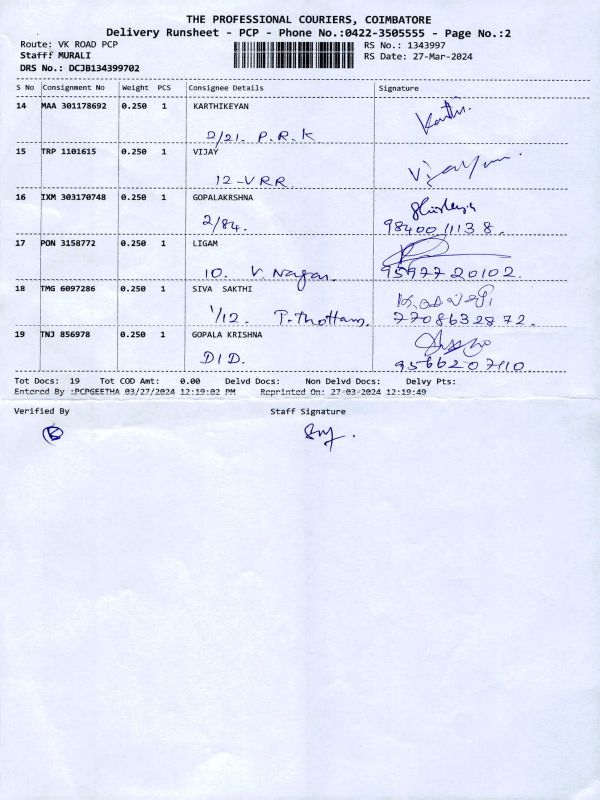 THE PROFESSIONAL COURIERS, COIMBATORE
Delivery Runsheet - PCP - Phone No.:0422-3505555 - Page No.:2
Route: VK ROAD PCP RS No.: 1343997
Staff: MURALI RS Date: 27-Mar-2024
DRS No.: DCJB134399702
S No Consignment No Weight PCS Consignee Details Signature
14 MAA 301178692 0.250 1 KARTHIKEYAN
2/21. P.R.K
15 TRP 1101615 0.250 1 VIJAY
12-VRR.
16 IXM 303170748 0.250 1 GOPALAKRSHNA
2/84. 9840011138.
17 PON 3158772 0.250 1 LIGAM
10. V. Nagar. 9597720102.
18 TMG 6097286 0.250 1 SIVA SAKTHI
1/12. P.Thottam. 7708632872.
19 TNJ 856978 0.250 1 GOPALA KRISHNA
D/D. 9566207110
Tot Docs: 19 Tot COD Amt: 0.00 Delvd Docs: Non Delvd Docs: Delvy Pts:
Entered By :PCPGEETHA 03/27/2024 12:19:02 PM Reprinted On: 27-03-2024 12:19:49
Verified By Staff Signature